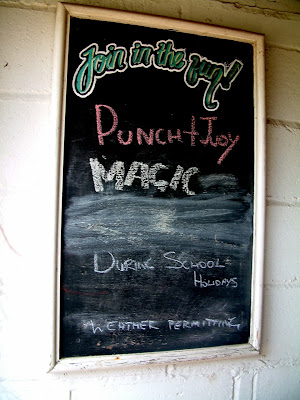 Join in the fun!
PUNCH + JUDY
MAGIC
DURING SCHOOL
HOLIDAYS
WEATHER PERMITTING